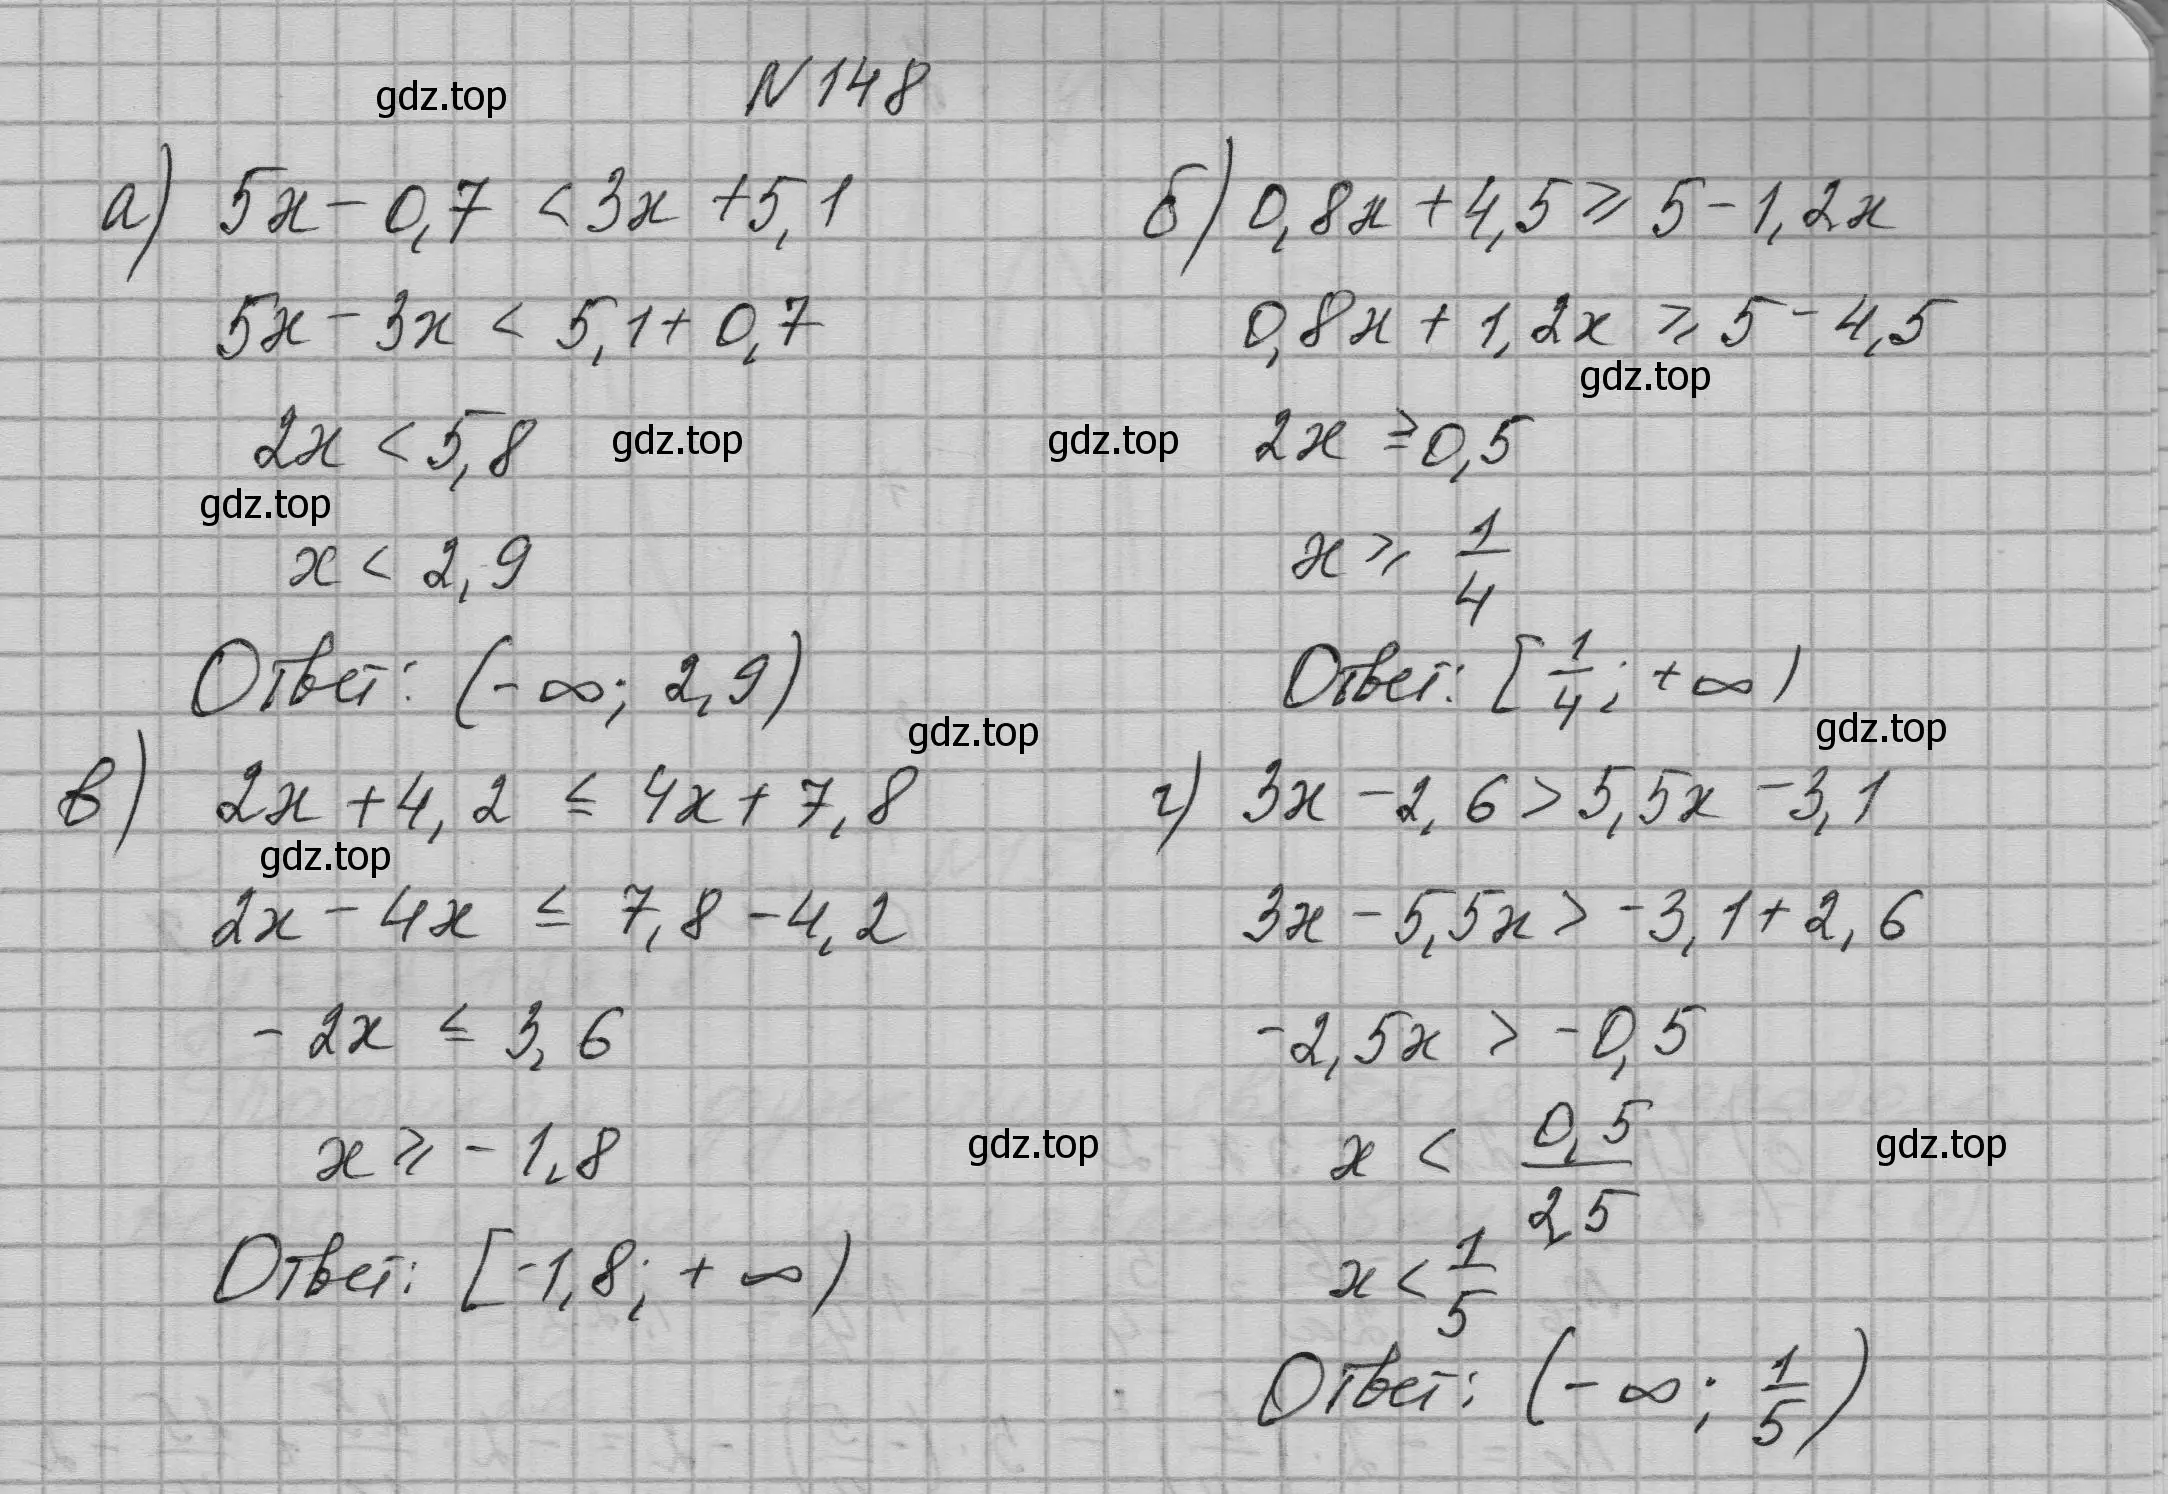 gdz.top
N 148
а) 5x - 0,7 < 3x + 5,1
5x - 3x < 5,1 + 0,7
2x < 5,8
gdz.top
gdz.top
x < 2,9
Ответ: (-∞; 2,9)
б) 0,8x + 4,5 ⩾ 5 - 1,2x
0,8x + 1,2x ⩾ 5 - 4,5
gdz.top
gdz.top
2x ≥ 0,5
x ⩾ 1/4
Ответ: [1/4; +∞)
gdz.top
gdz.top
в) 2x + 4,2 ≤ 4x + 7,8
gdz.top
2x - 4x ≤ 7,8 - 4,2
-2x ≤ 3,6
x ⩾ -1,8
gdz.top
Ответ: [-1,8; +∞)
г) 3x - 2,6 > 5,5x - 3,1
3x - 5,5x > -3,1 + 2,6
-2,5x > -0,5
x < 0,5/2,5
gdz.top
x < 1/5
Ответ: (-∞; 1/5)